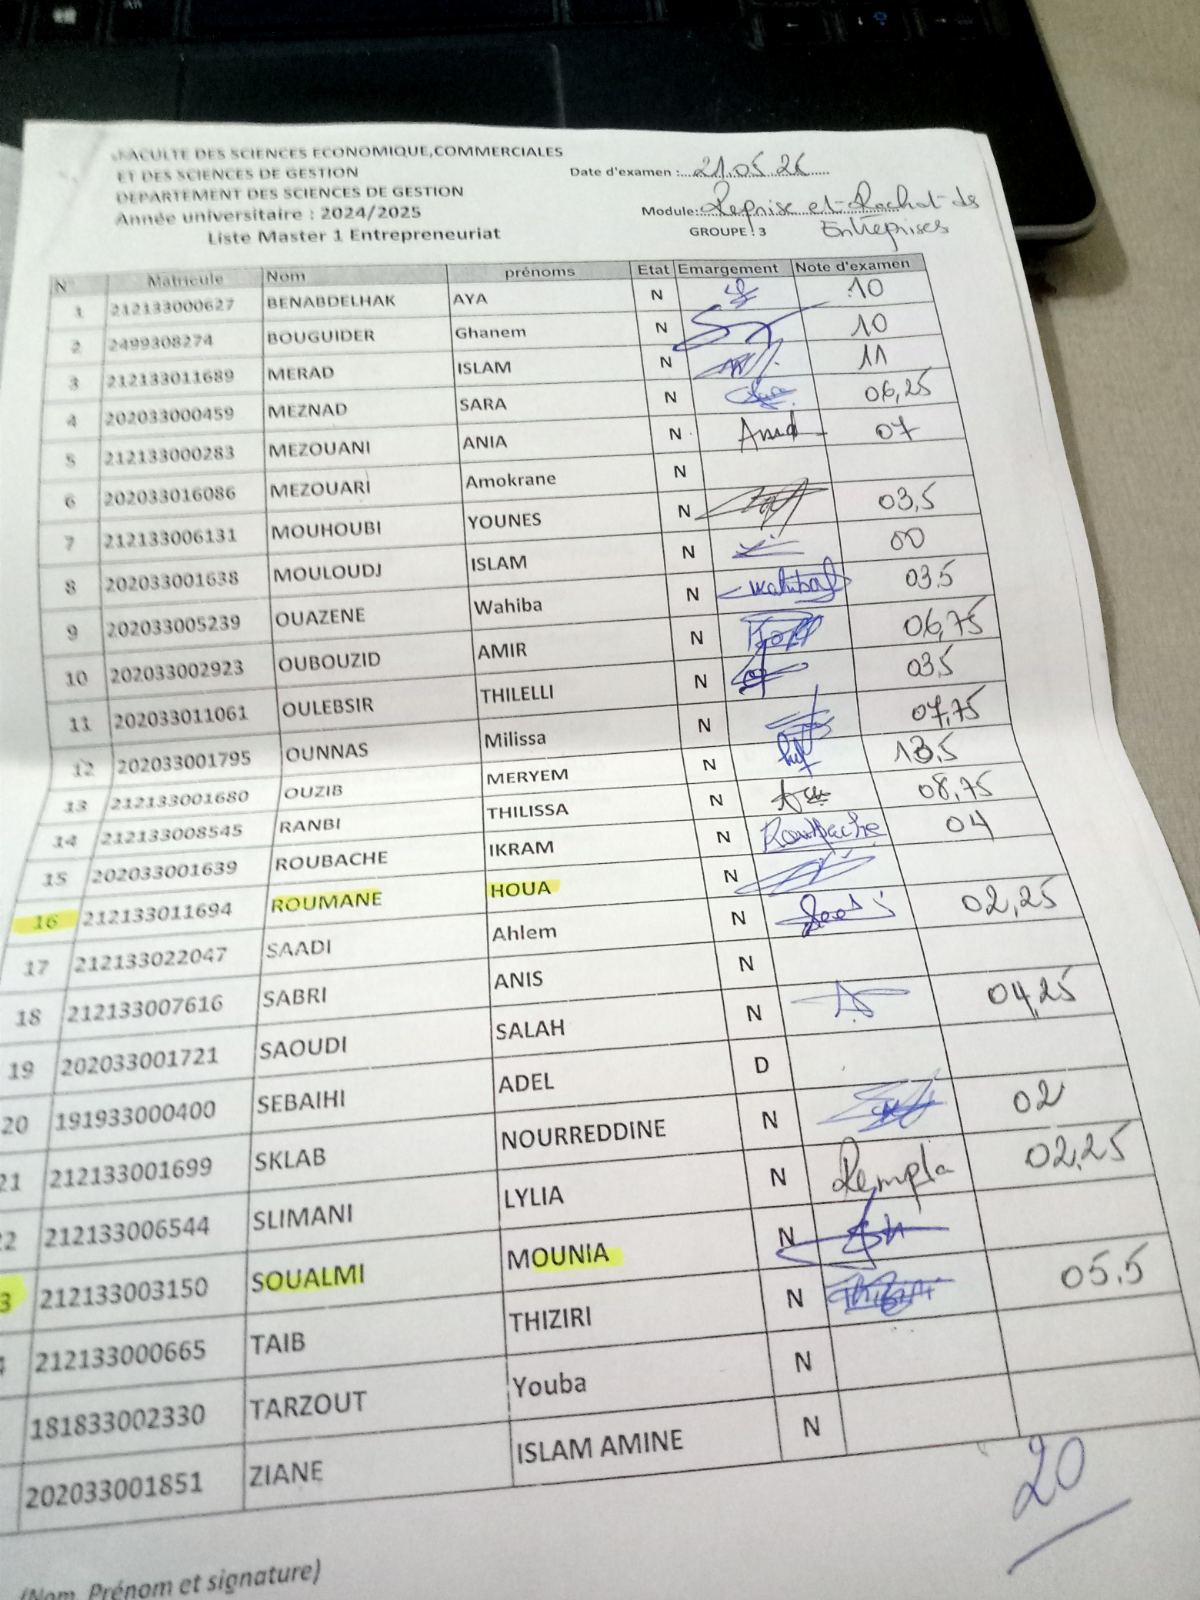 FACULTE DES SCIENCES ECONOMIQUE,COMMERCIALES
ET DES SCIENCES DE GESTION
DEPARTEMENT DES SCIENCES DE GESTION
Année universitaire : 2024/2025
Liste Master 1 Entrepreneuriat
Date d'examen :...21.05.26.....
Module:...Reprise et Rachat de
Entreprises
GROUPE : 3
N° Matricule Nom prénoms Etat Emargement Note d'examen
1 212133000627 BENABDELHAK AYA N 10
2 2499308274 BOUGUIDER Ghanem N 10
3 212133011689 MERAD ISLAM N 11
4 202033000459 MEZNAD SARA N 06,25
5 212133000283 MEZOUANI ANIA N 07
6 202033016086 MEZOUARI Amokrane N
7 212133006131 MOUHOUBI YOUNES N 03,5
8 202033001638 MOULOUDJ ISLAM N 00
9 202033005239 OUAZENE Wahiba N wahiba 03.5
10 202033002923 OUBOUZID AMIR N 06,75
11 202033011061 OULEBSIR THILELLI N 03,5
12 202033001795 OUNNAS Milissa N 07,75
13 212133001680 OUZIB MERYEM N 13,5
14 212133008545 RANBI THILISSA N 08,75
15 202033001639 ROUBACHE IKRAM N Roubache 04
16 212133011694 ROUMANE HOUA N
17 212133022047 SAADI Ahlem N 02,25
18 212133007616 SABRI ANIS N
19 202033001721 SAOUDI SALAH N 04,25
20 191933000400 SEBAIHI ADEL D
21 212133001699 SKLAB NOURREDDINE N 02
22 212133006544 SLIMANI LYLIA N Rempla 02,25
3 212133003150 SOUALMI MOUNIA N
4 212133000665 TAIB THIZIRI N 05.5
181833002330 TARZOUT Youba N
202033001851 ZIANE ISLAM AMINE N
20
(Nom, Prénom et signature)